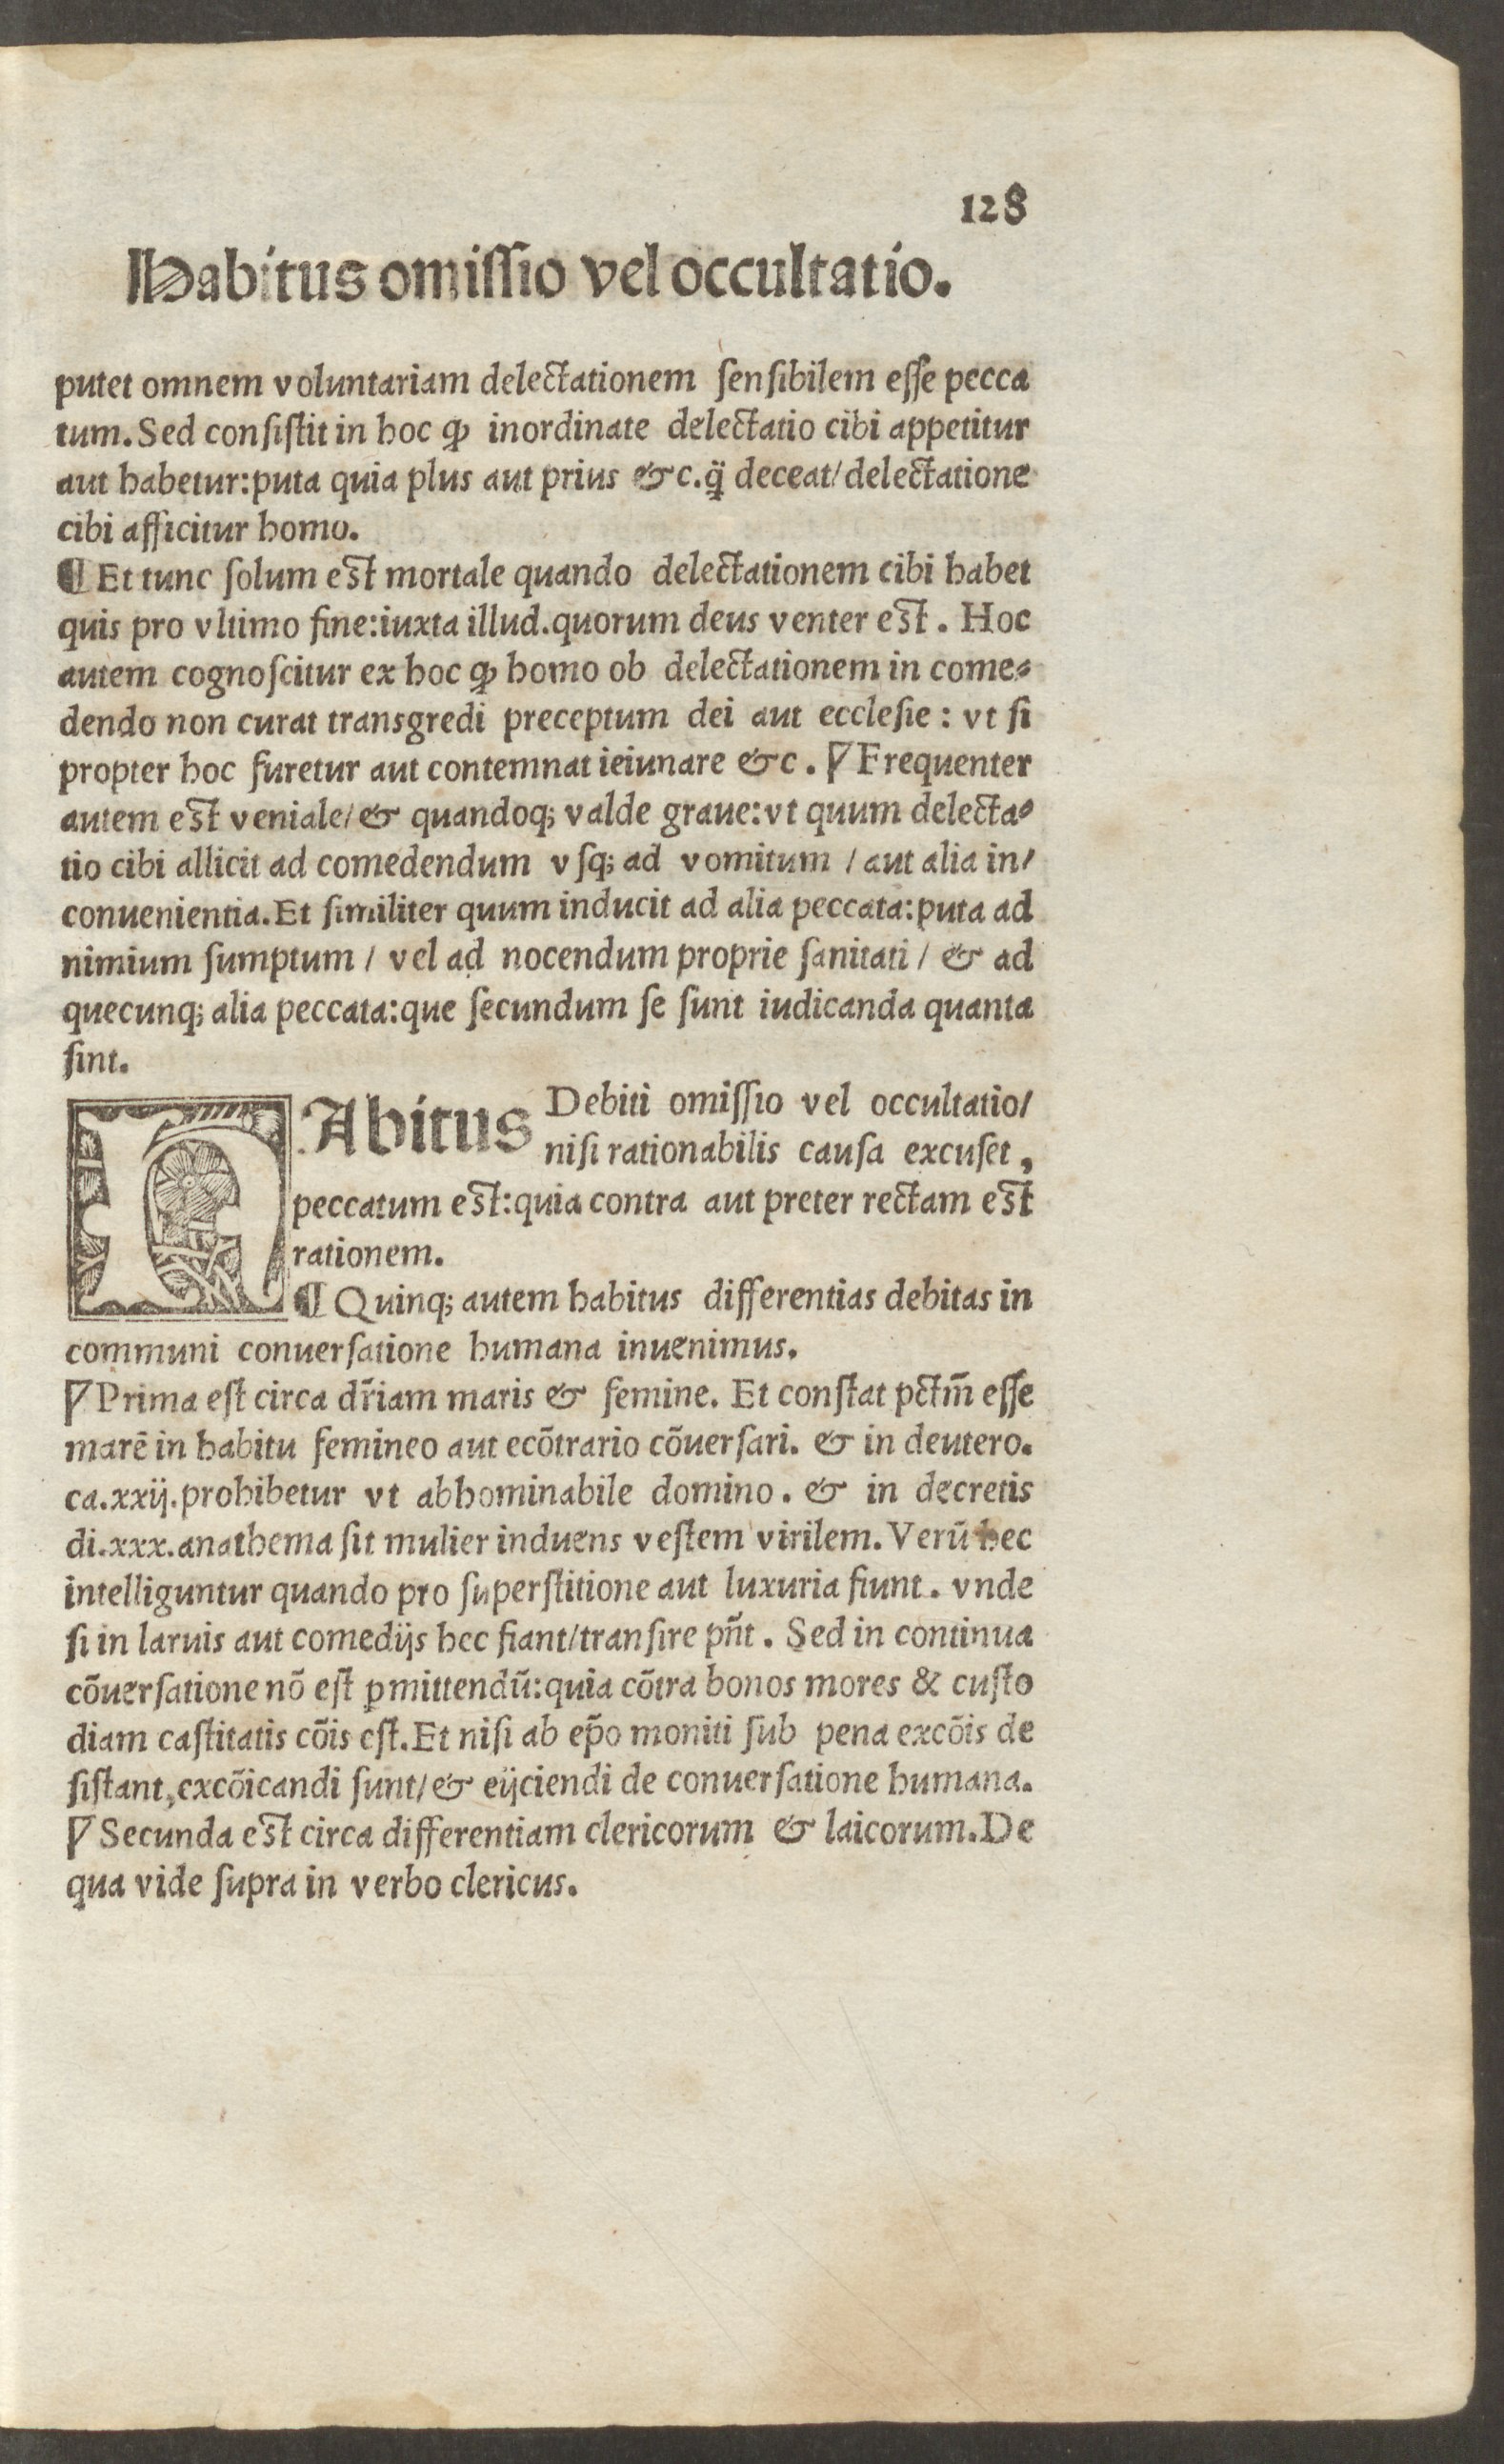 128
Habitus omissio vel occultatio.
putet omnem voluntariam delectationem ſenſibilem eſſe pecca
tum. Sed conſiſtit in hoc ꝙ inordinate delectatio cibi appetitur
aut habetur: puta quia plus aut prius &c. q̃ deceat/ delectatione
cibi afficitur homo.
¶ Et tunc ſolum eſt mortale quando delectationem cibi habet
quis pro vltimo fine: iuxta illud. quorum deus venter eſt. Hoc
autem cognoſcitur ex hoc ꝙ homo ob delectationem in come⸗
dendo non curat transgredi preceptum dei aut eccleſie: vt ſi
propter hoc furetur aut contemnat ieiunare &c. ℣ Frequenter
autem eſt veniale/ & quandoq; valde graue: vt quum delecta⸗
tio cibi allicit ad comedendum vſq; ad vomitum / aut alia in/
conuenientia. Et ſimiliter quum inducit ad alia peccata: puta ad
nimium ſumptum / vel ad nocendum proprie ſanitati / & ad
quecunq; alia peccata: que ſecundum ſe ſunt iudicanda quanta
ſint.
HAbitus Debiti omiſſio vel occultatio/
niſi rationabilis cauſa excuſet,
peccatum eſt: quia contra aut preter rectam eſt
rationem.
¶ Quinq; autem habitus differentias debitas in
communi conuerſatione humana inuenimus.
℣ Prima eſt circa dr̃iam maris & femine. Et conſtat pctm̃ eſſe
marẽ in habitu femineo aut ecõtrario cõuerſari. & in deutero.
ca.xxij. prohibetur vt abhominabile domino. & in decretis
di.xxx. anathema ſit mulier induens veſtem virilem. Verũ hec
intelliguntur quando pro ſuperſtitione aut luxuria fiunt. vnde
ſi in laruis aut comedijs hec fiant/ tranſire pñt. Sed in continua
cõuerſatione nõ eſt ꝑmittendũ: quia cõtra bonos mores & cuſto
diam caſtitatis cõis eſt. Et niſi ab ep̃o moniti ſub pena excõis de
ſiſtant, excõicandi ſunt/ & eijciendi de conuerſatione humana.
℣ Secunda eſt circa differentiam clericorum & laicorum. De
qua vide ſupra in verbo clericus.